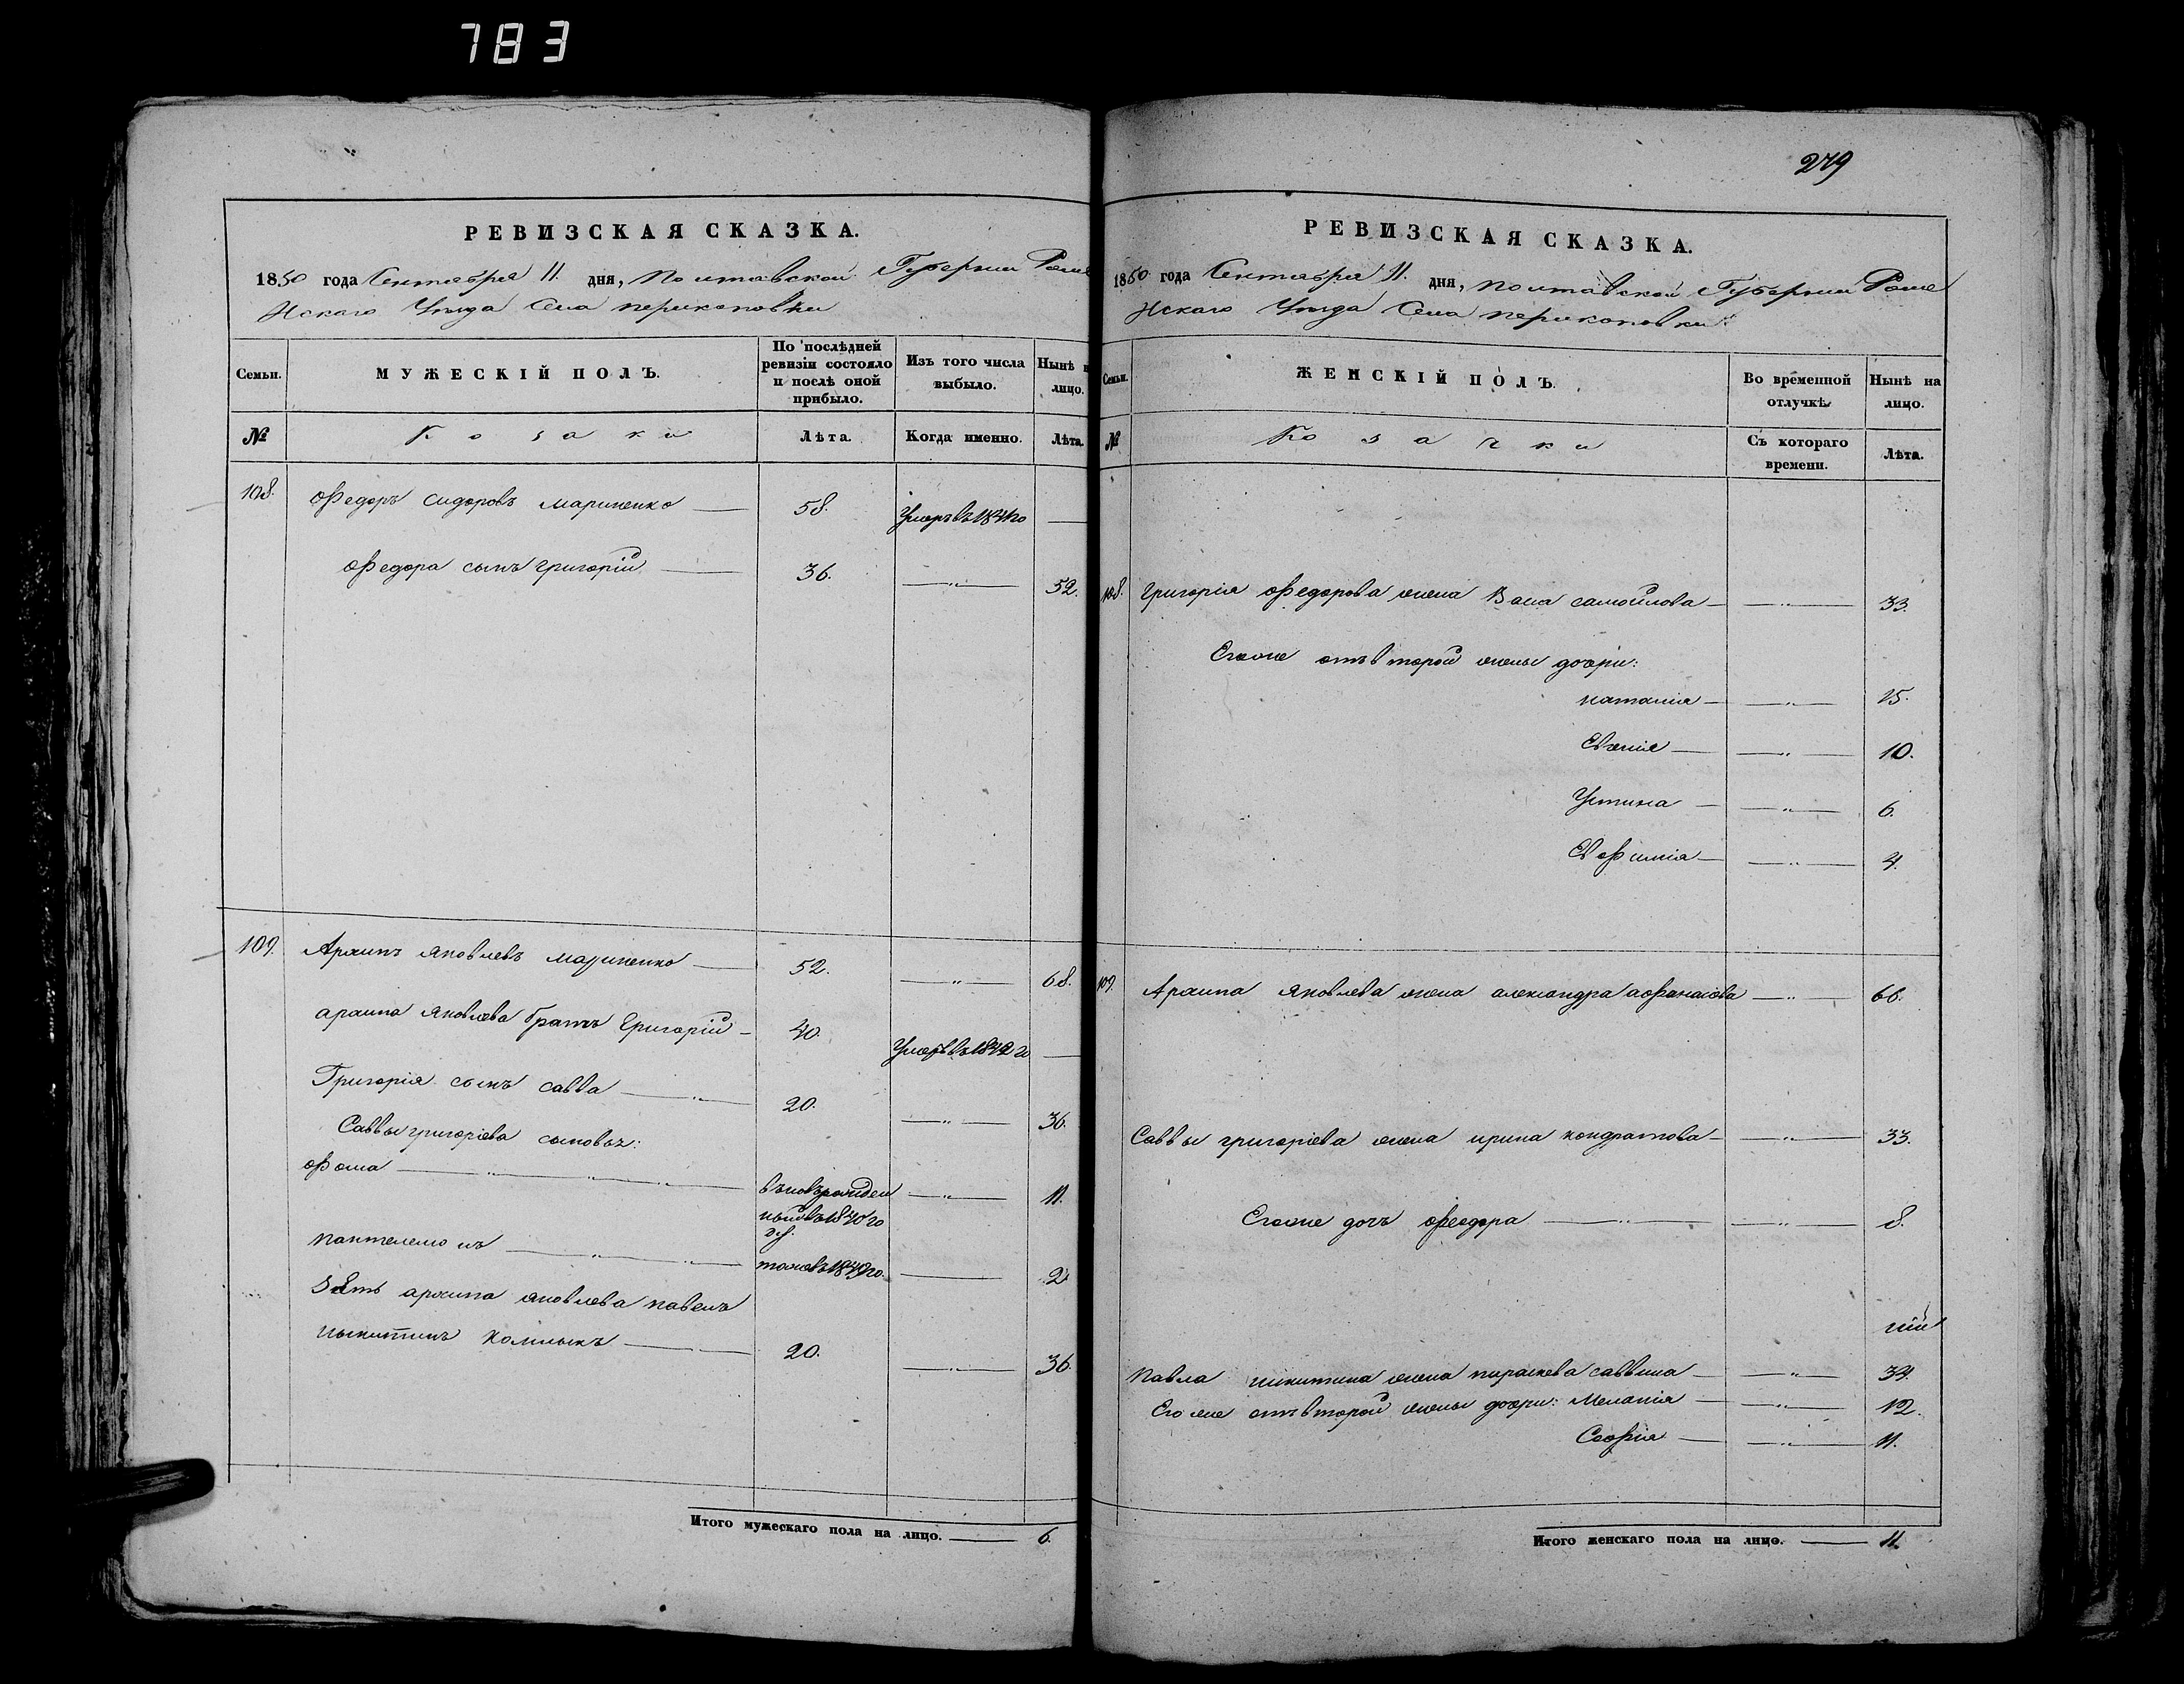 783
РЕВИЗСКАЯ СКАЗКА.
1850 года Сентября 11. дня, Полтавской Губернии Роме
Нскаго Уѣзда Села перикоповки
Семьи.
МУЖЕСКІЙ ПОЛЪ.
По послѣдней ревизіи состояло и послѣ оной прибыло.
Изъ того числа выбыло.
Нынѣ н лицо.
№
Козаки
Лѣта.
Когда именно.
Лѣта.
108. Федоръ сидоровъ мариненко — 58. Умеръ въ 1841 го —
Федора сынъ григорій — 36. —„— 52.
109. Архипъ яковлевъ мариненко — 52. —„— 68.
архипа яковлева братъ григорій — 40. Умеръ въ 1842 го —
Григорія сынъ савва —„— 20. —„— 36.
Саввы григоріева сыновья:
Фома —„— „— вновьрожден —„— 11.
ный въ 1840 го
пантелемонъ —„— „— тожъ въ 1849 го. — 2
Зять архипа яковлева павелъ
никитинъ колныкъ — 20. —„— 36.
Итого мужескаго пола на лицо. — 6.
279
РЕВИЗСКАЯ СКАЗКА.
1850 года Сентября 11. дня, полтавской Губернии Роме
Нскаго Уѣзда Села перикоповки
Семьи.
ЖЕНСКІЙ ПОЛЪ.
Во временной отлучкѣ
Нынѣ на лицо.
№
Козачки
Съ котораго времени.
Лѣта.
108. григорія Федорова жена Васа самойлова — —„— 33.
Егоже отъ второй жены дочери:
наталія — —„— 15.
Евгенія — —„— 10.
Устина — —„— 6.
Евфимія — —„— 4.
109. Архипа яковлева жена александра афанасіева —„— 66.
Саввы григоріева жена ирина кондратова — —„— 33.
Егоже дочь феодора —„— —„— 8.
Павла никитина жена параскева саввина — —„— 34.
Его же отъ второй жены дочери: Меланія — —„— 12.
Софія — —„— 11.
Итого женскаго пола на лицо. — 11.